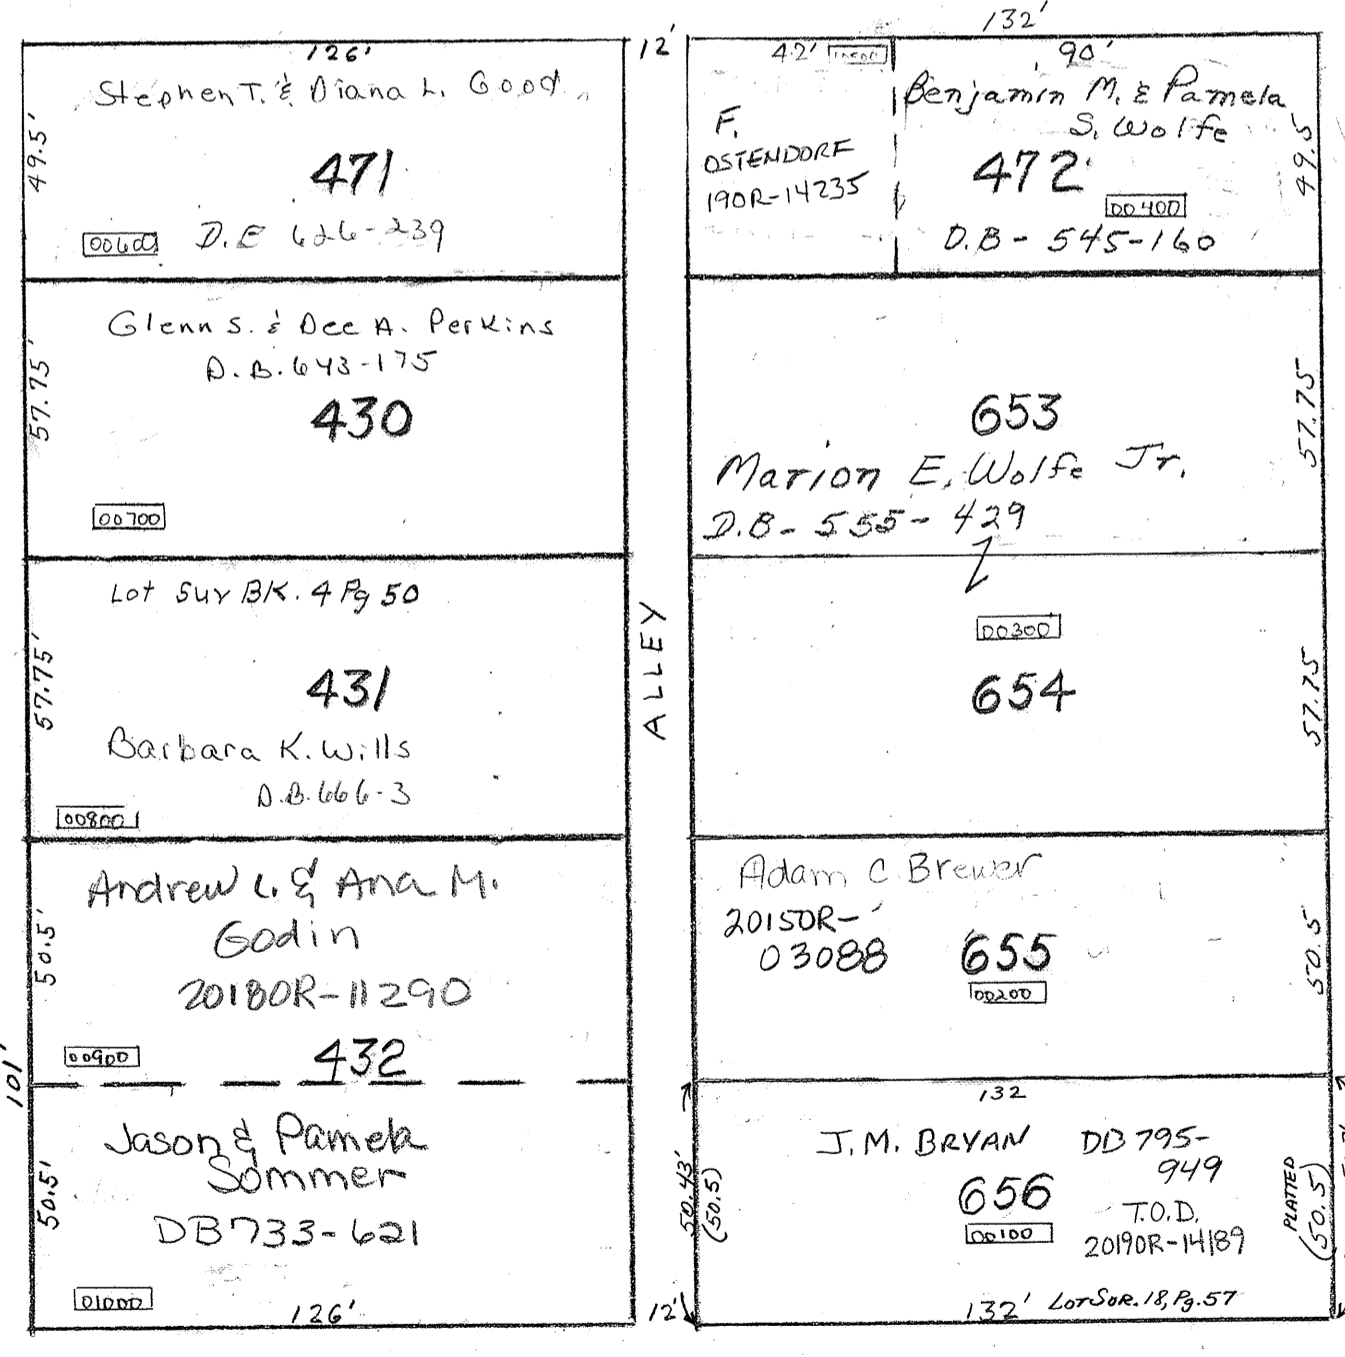 126'
Stephen T. & Diana L. Good
49.5'
471
00600
D.E 626-239
57.75'
Glenn S. & Dee A. Perkins
D.B. 643-175
430
00700
57.75'
Lot Sur BK. 4 Pg 50
431
Barbara K. Wills
D.B. 666-3
00800
50.5'
Andrew L. & Ana M.
Godin
2018OR-11290
00900
432
101'
50.5'
Jason & Pamela
Sommer
DB 733-621
01000
126'
12'
ALLEY
12'
132'
42'
F.
OSTENDORF
190R-14235
90'
Benjamin M. & Pamela
S. Wolfe
472
00400
D.B - 545-160
49.5
653
Marion E. Wolfe Jr.
D.B - 555-429
57.75
00300
654
57.75
Adam C Brewer
2015OR-
03088
655
00200
50.5
132
J.M. BRYAN
DB 795-
949
656
00100
T.O.D.
2019OR-14189
50.43'
(50.5)
PLATTED
(50.5)
132'
LOT SUR. 18, Pg. 57